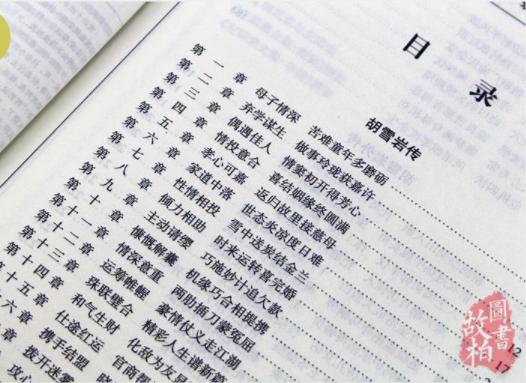 目 录
胡雪岩传
第一章 母子情深 苦难童年多磨砺
第二章 弃学谋生 做事玲珑获嘉许
第三章 偶遇佳人 情窦初开待芳心
第四章 情投意合 喜结姻缘终圆满
第五章 孝心可嘉 返归故里接慈母
第六章 家道中落 世态炎凉度日难
第七章 性情相投 雪中送炭结金兰
第八章 倾力相助 时来运转喜完婚
第九章 主动请缨 巧施妙计追欠款
第十章 慷慨解囊 机缘巧合相提携
第十一章 情深意重 两肋插刀蒙冤屈
第十二章 运筹帷幄 豪情仗义走江湖
第十三章 珠联璧合 精彩人生谱新篇
第十四章 和气生财 化敌为友
十五章 仕途红运 官商
六章 携手结盟
章 拨开迷雾
攻心
12
17
故柏圖書